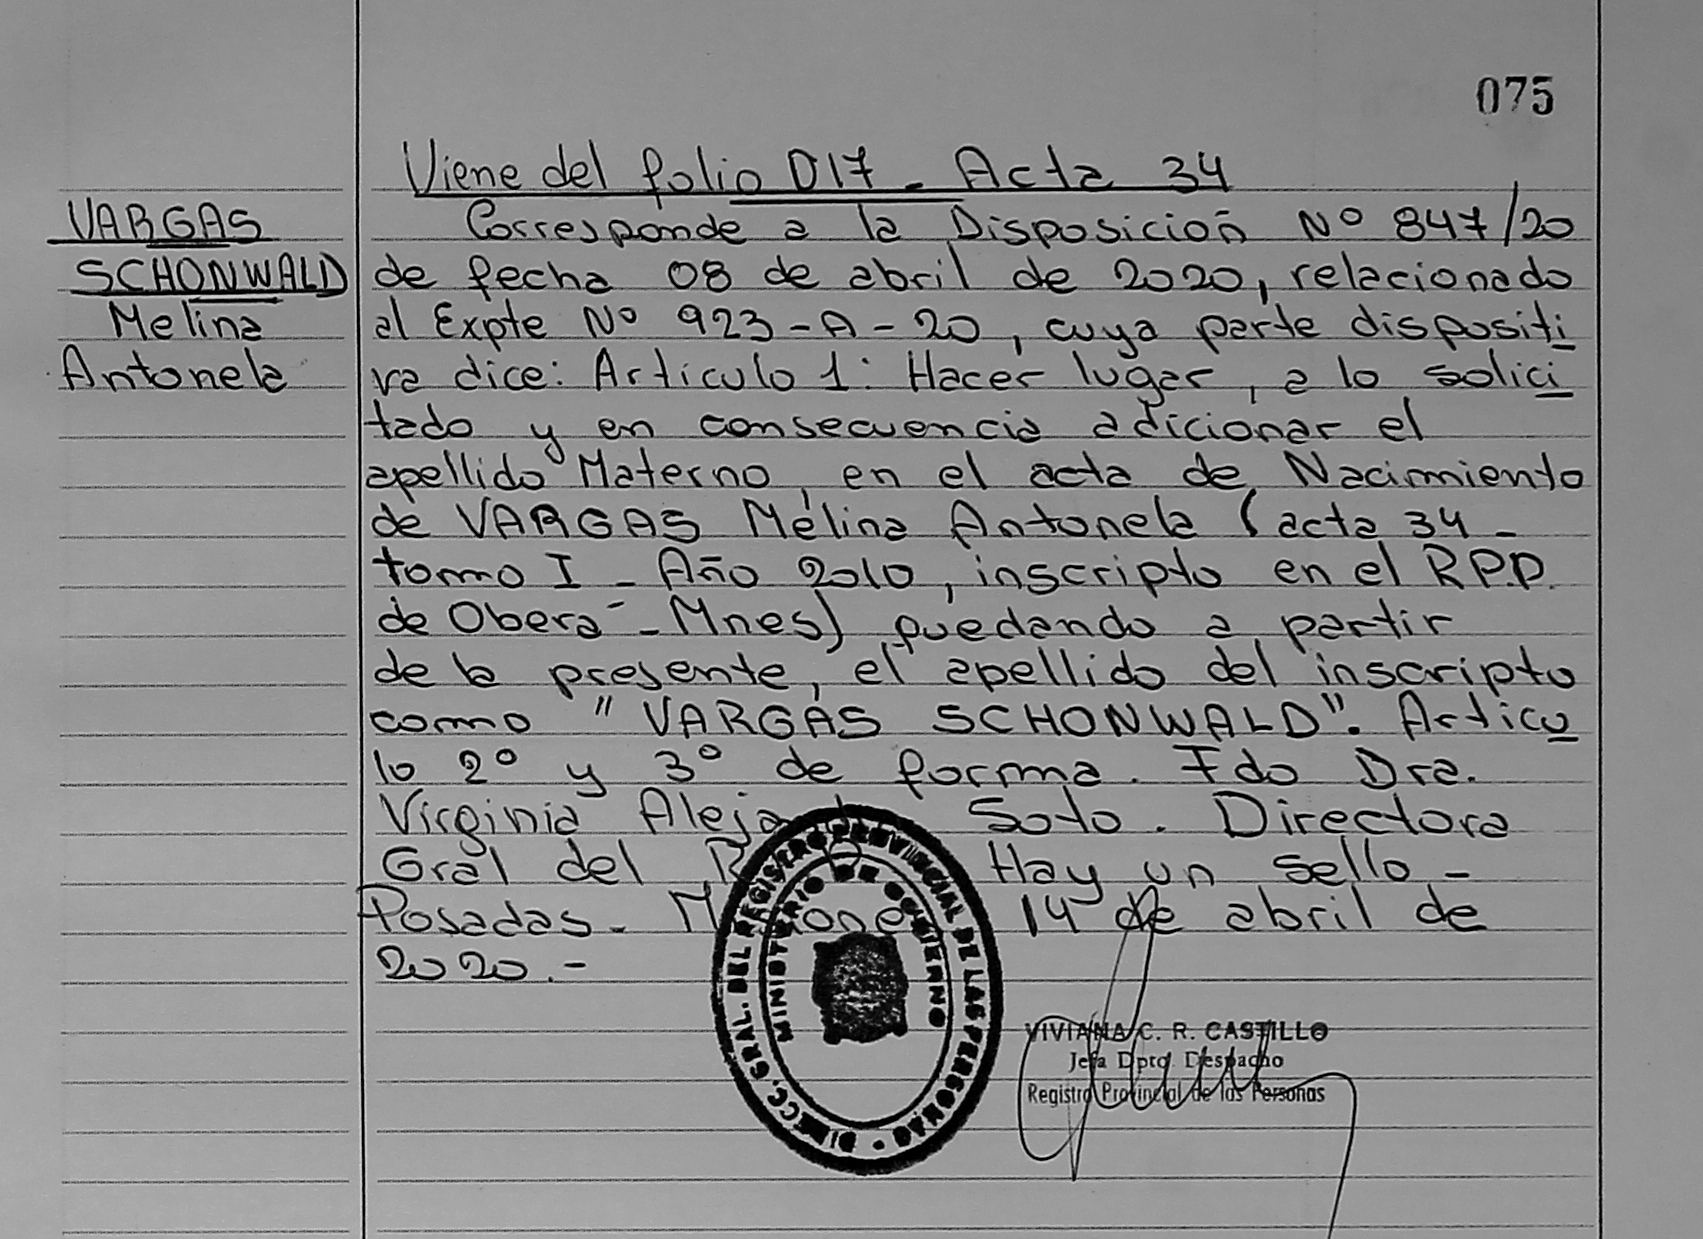 075
Viene del folio 017 - Acta 34
VARGAS
SCHONWALD
Melina
Antonela
Corresponde a la Disposición Nº 847/20
de fecha 08 de abril de 2020, relacionado
al Expte Nº 923-A-20, cuya parte dispositi
va dice: Articulo 1: Hacer lugar, a lo solici
tado y en consecuencia adicionar el
apellido Materno, en el acta de Nacimiento
de VARGAS Melina Antonela (acta 34 -
tomo I - Año 2010, inscripto en el R.P.P.
de Oberá - Mnes) quedando a partir
de la presente, el apellido del inscripto
como "VARGAS SCHONWALD". Articu
lo 2º y 3º de forma. Fdo Dra.
Virginia Soto. Directora
Gral del Hay un sello -
Posadas - 14 de abril de
2020.-
DIRECC. GRAL. DEL REGISTRO PROVINCIAL DE LAS PERSONAS
MINISTERIO DE GOBIERNO
VIVIANA C. R. CASTILLO
Jefa Dpto Despacho
Registro Provincial de las Personas